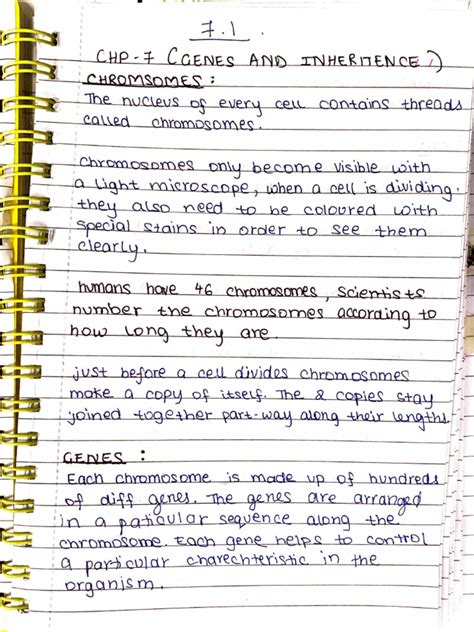 7.1.
CHP-7 (GENES AND INHERITENCE)
CHROMSOMES:
The nucleus of every cell contains threads
called chromosomes.
chromosomes only become visible with
a light microscope, when a cell is dividing.
they also need to be coloured with
special stains in order to see them
clearly.
humans have 46 chromosomes, scientists
number the chromosomes according to
how long they are.
just before a cell divides chromosomes
make a copy of itself. The 2 copies stay
joined together part-way along their lengths
GENES:
Each chromosome is made up of hundreds
of diff genes. The genes are arranged
in a paticular sequence along the
chromosome. Each gene helps to control
a particular charechteristic in the
organism.